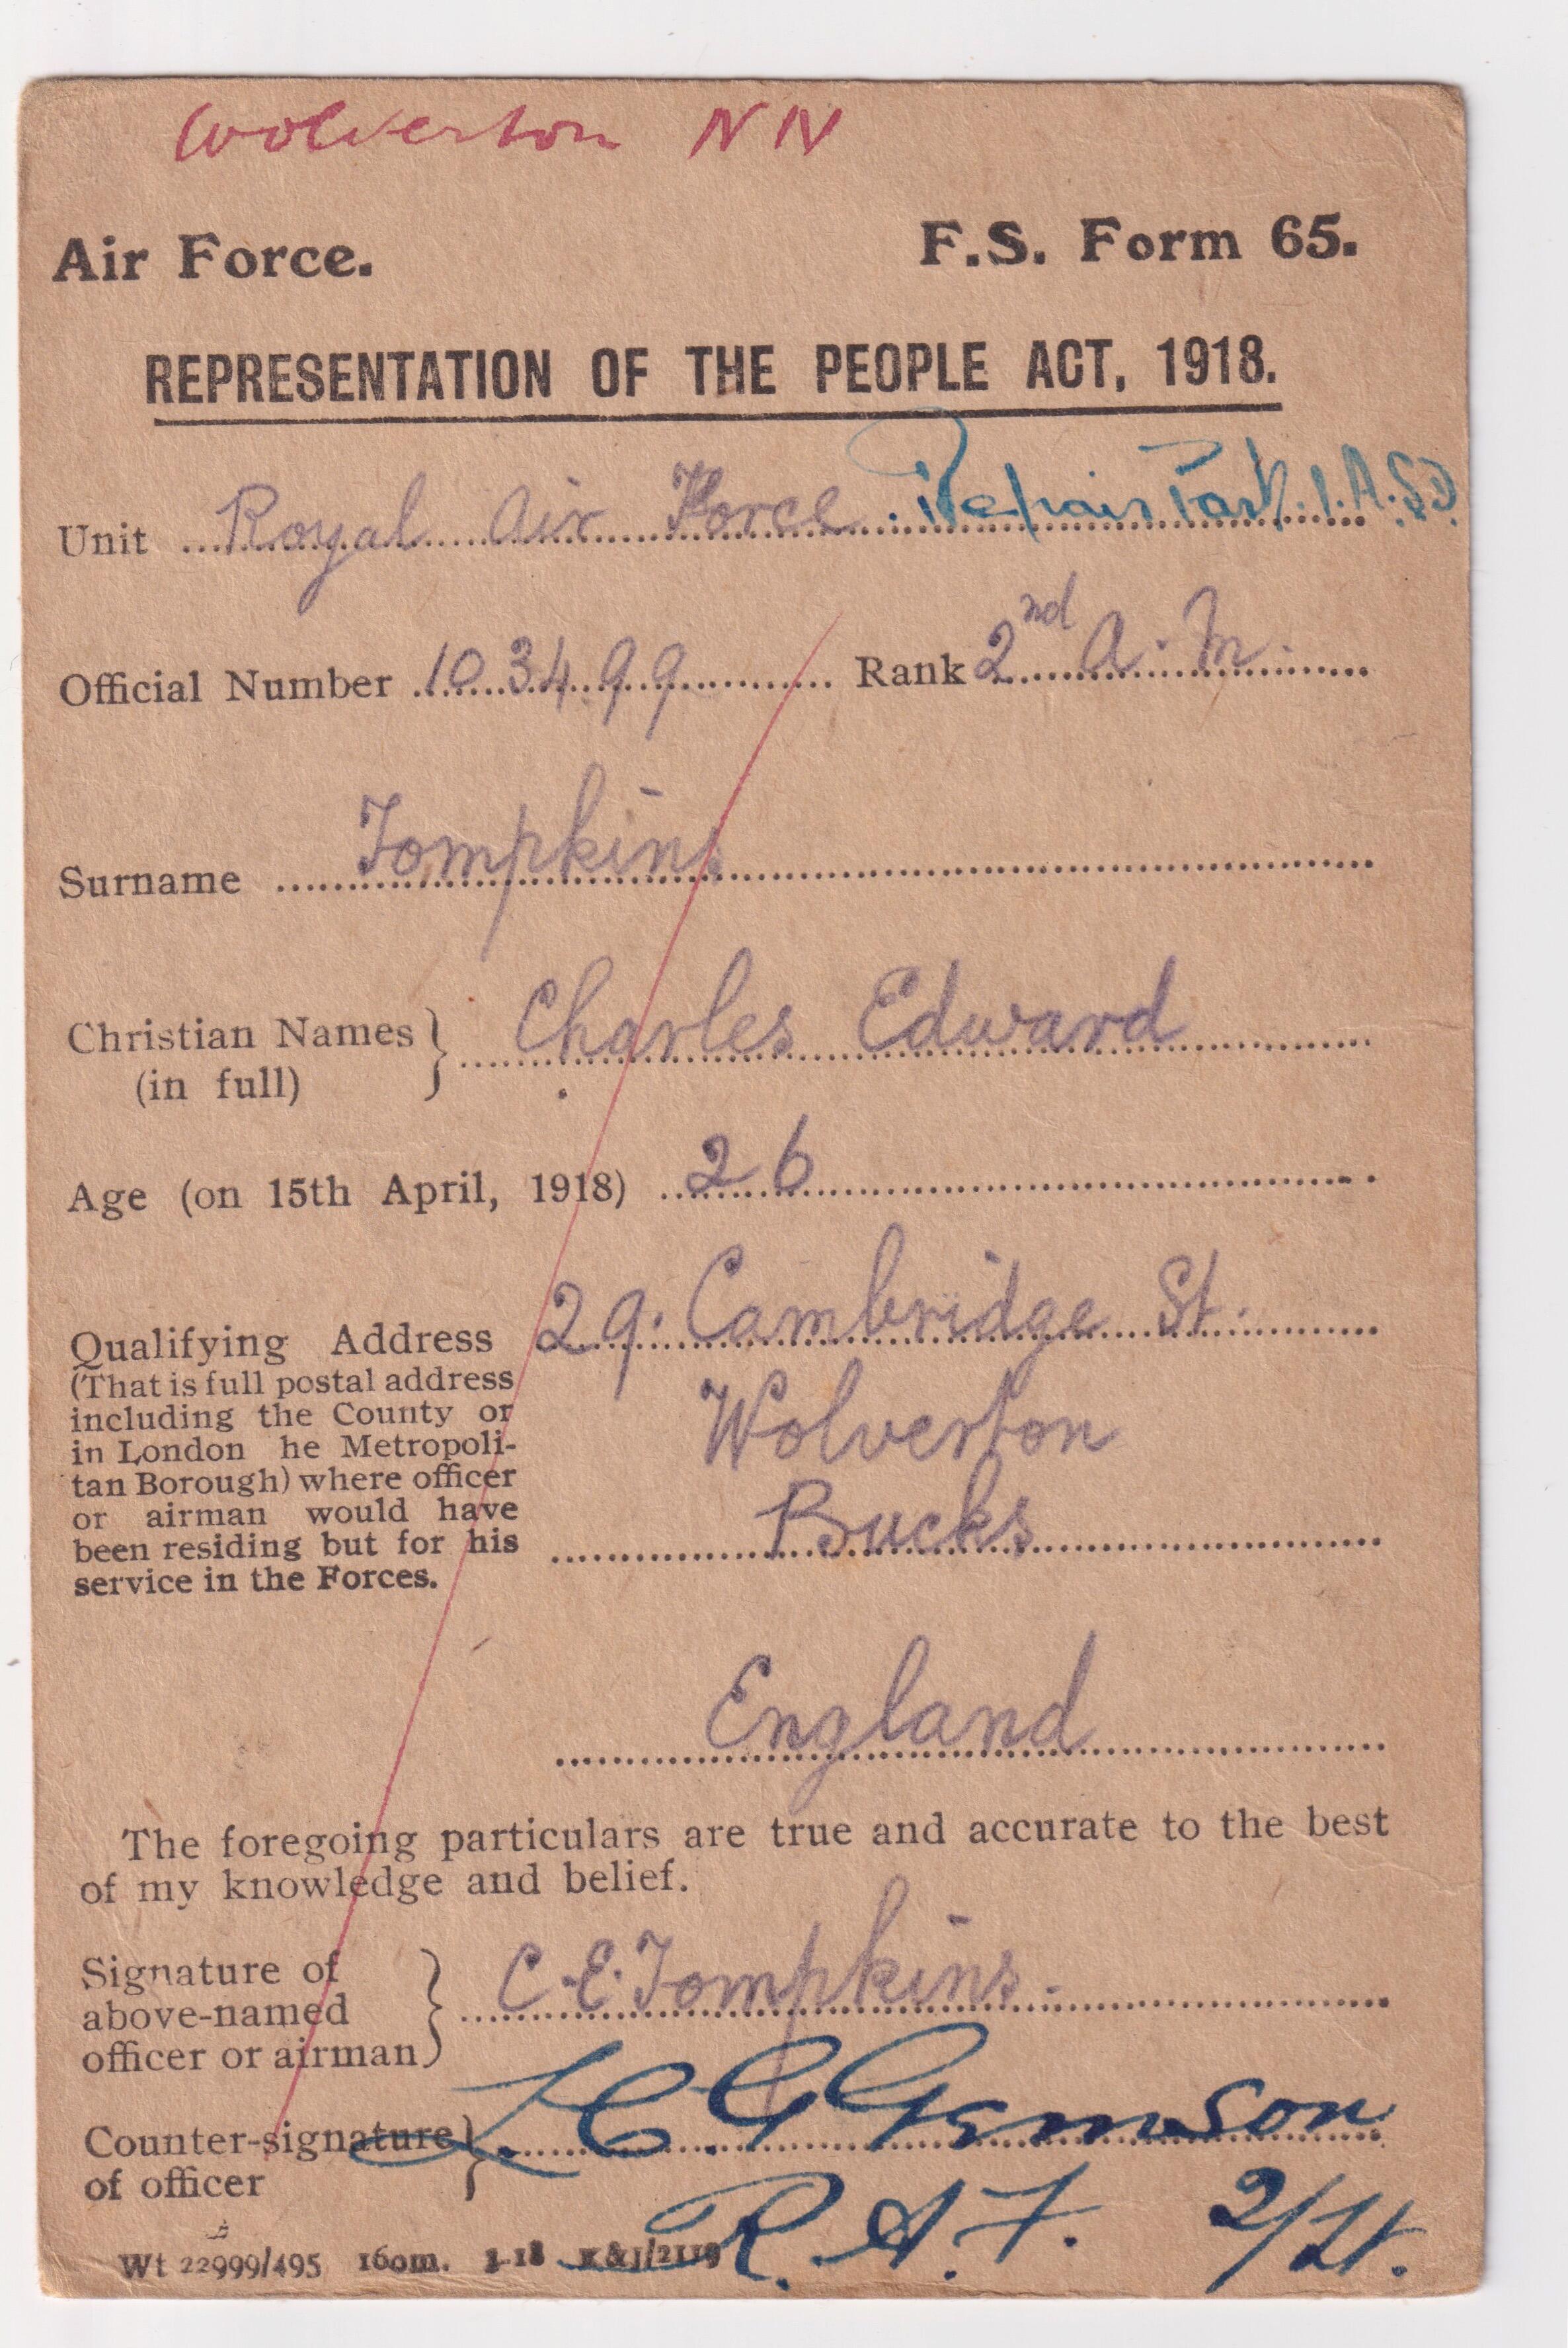 Wolverton NN
Air Force. F.S. Form 65.
REPRESENTATION OF THE PEOPLE ACT, 1918.
Unit Royal Air Force. Repair Park. 1. A.S.D.
Official Number 103499 Rank 2nd A. M.
Surname Tompkins
Christian Names (in full) Charles Edward
Age (on 15th April, 1918) 26
Qualifying Address 29. Cambridge St.
(That is full postal address
including the County or
in London he Metropoli-
tan Borough) where officer
or airman would have
been residing but for his
service in the Forces.
Wolverton
Bucks
England
The foregoing particulars are true and accurate to the best
of my knowledge and belief.
Signature of
above-named
officer or airman
C. E. Tompkins.
Counter-signature
of officer
R.A.F. 2/Lt.
Wt 22999/495 160m. 3-18 K&J/2119